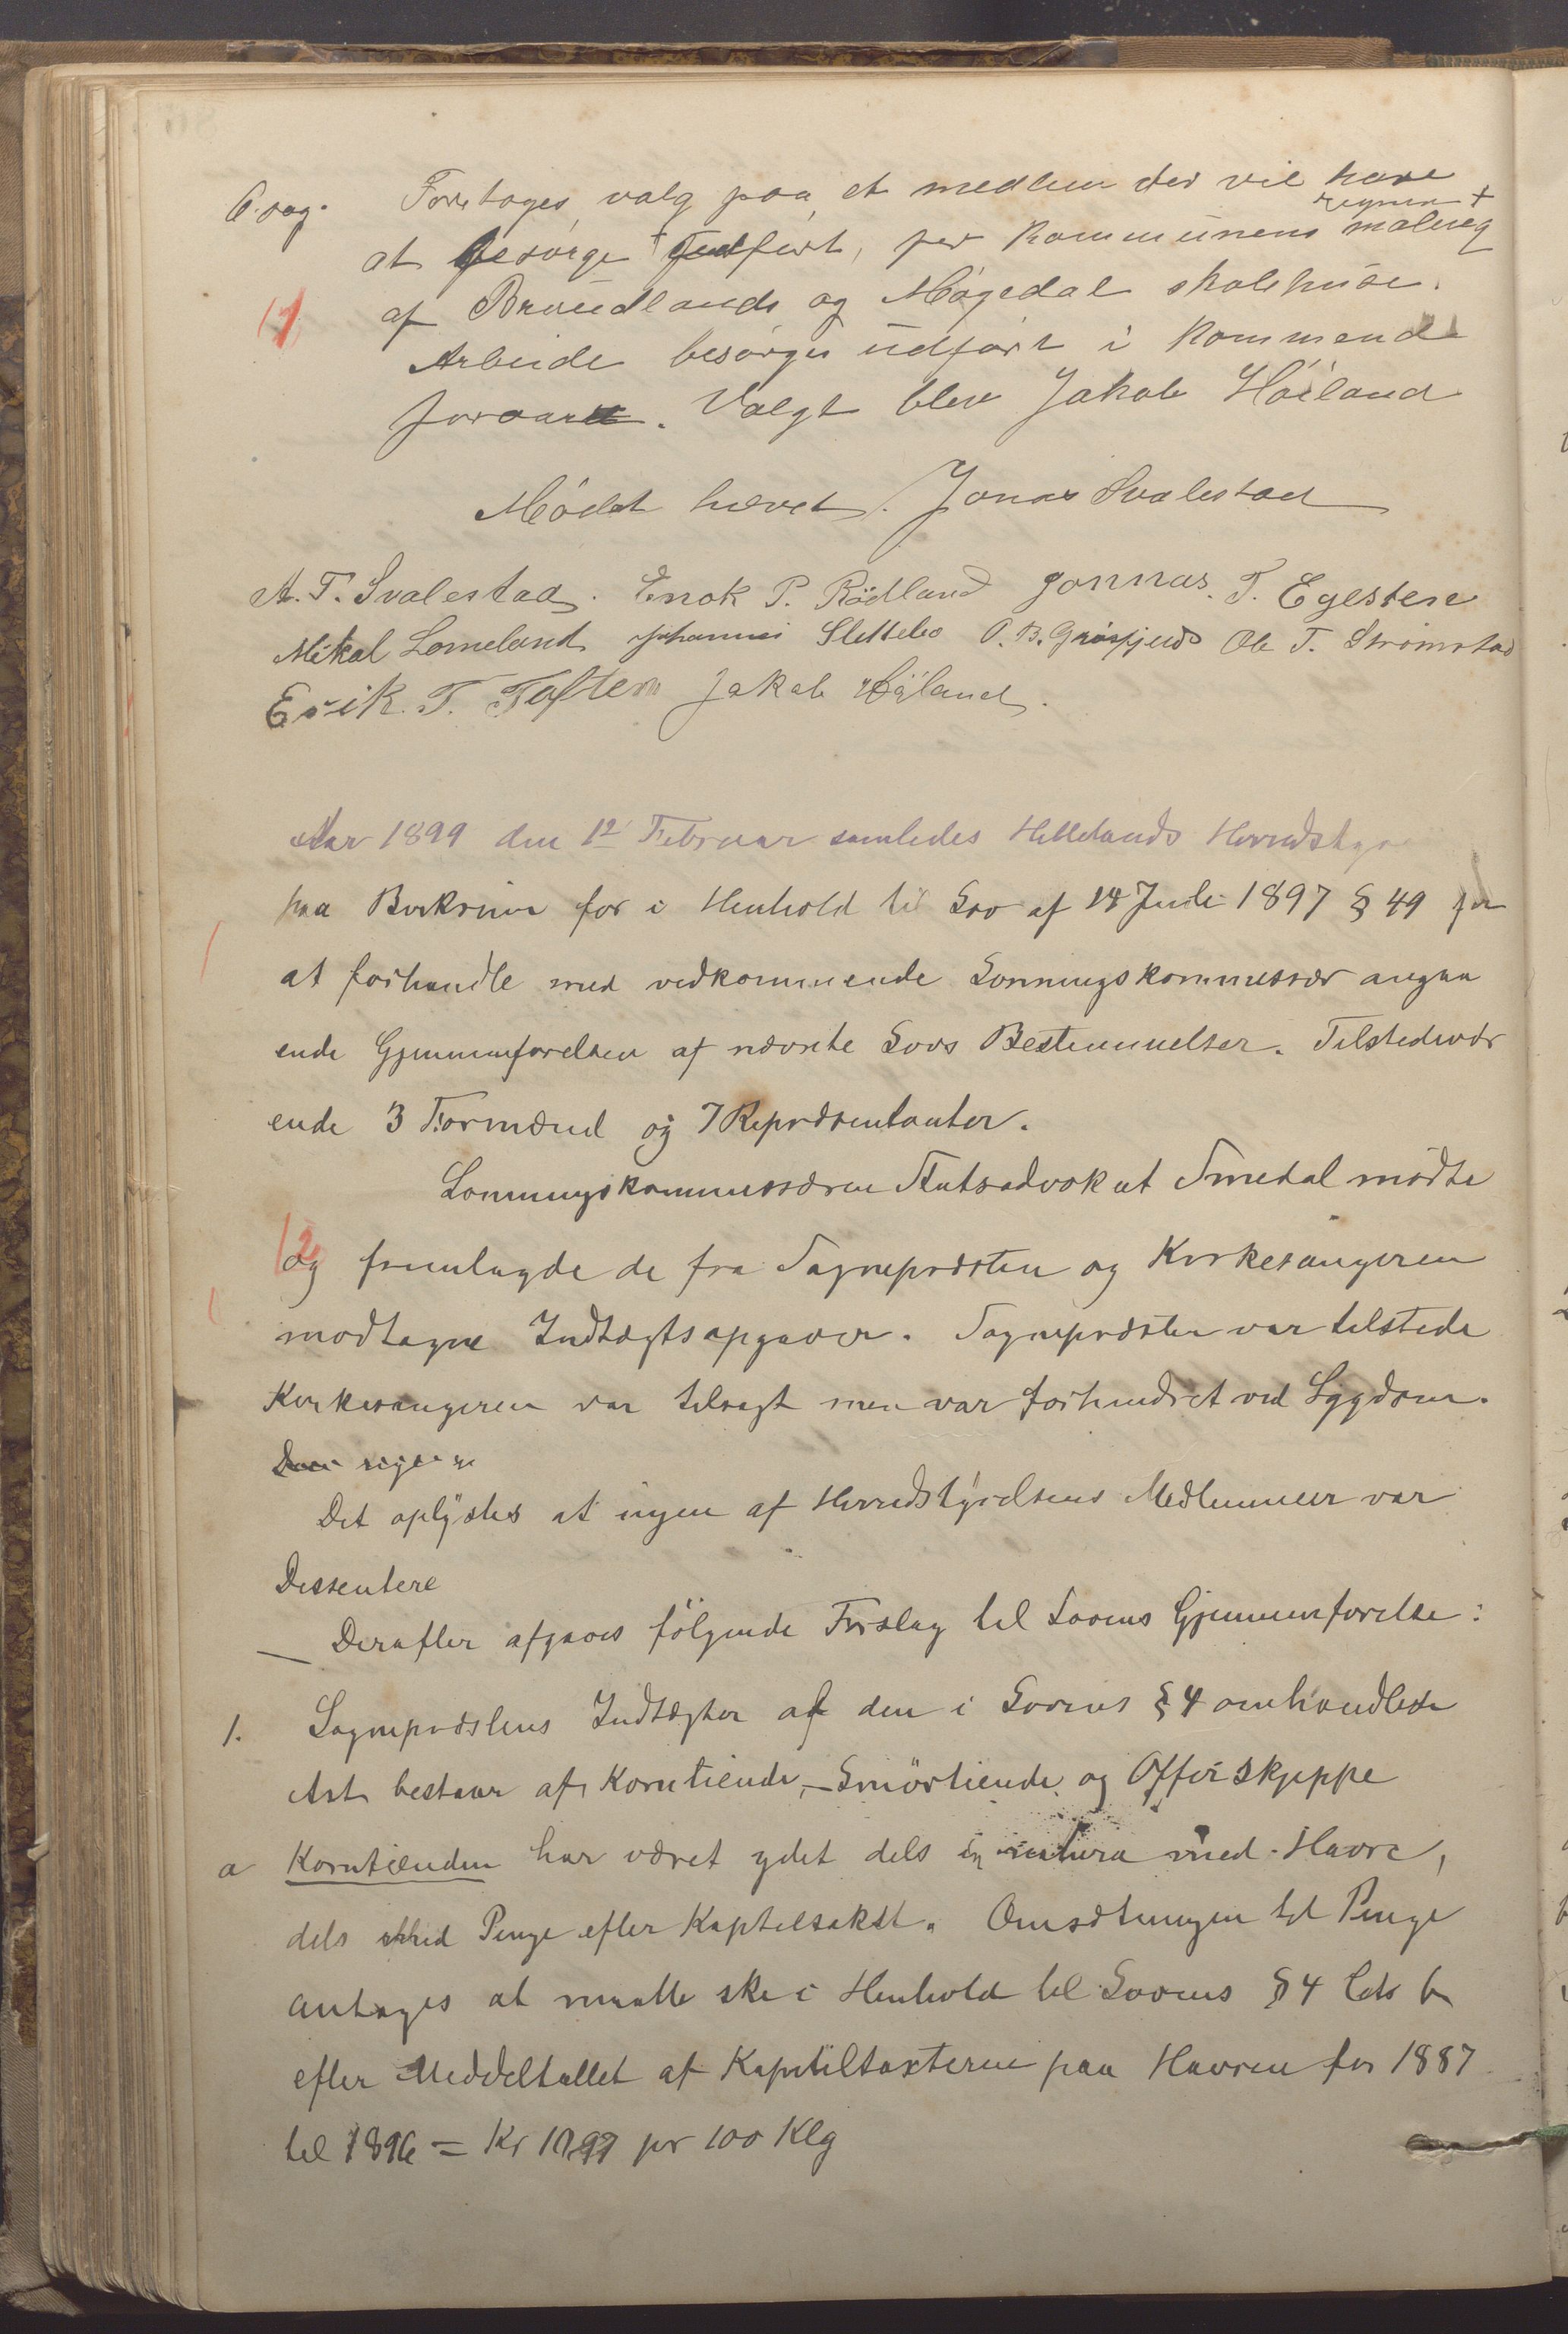 6. sag. Foretoges valg paa et medlem der vil have
at besørge udført, per Kommunens regnin + malneg
af Brøudlands og Møgedal skolehuse.
11
Arbeide besørges udført i kommende
foraar. Valgt blev Jakob Höiland
Mödet hævet. Jonas Svalestad
A. T. Svalestad. Enok P. Rödland Jonnas. T. Egesten
Mikal Lomeland Johannes Slettebo O. B. Grøsfjeld Ole T. Strømstad
Erik. T. Toften Jakob Höiland.
Aar 1899 den 12 Februar samledes Hellelands Herredstyre
paa Birkrim for i Henhold til Lov af 14 Juli 1897 § 49 for
at forhandle med vedkommende Lønningskommissær angaa
ende Gjennemførelsen af nævnte Lovs Bestemmelser. Tilstedevær
ende 3 Formænd og 7 Repræsentanter.
Lønningskommissæren Statsadvokat Smedal mødte
12
og fremlagde de fra Sognepræsten og Kirkesangeren
modtagne Indtægtsopgaver. Sognepræsten var tilstede
Kirkesangeren var tilsagt men var forhindret ved Sygdom.
Det oplystes at ingen af Herredstyrelsens Medlemmer var
Dissentere
Derefter afgaves følgende Forslag til Lovens Gjennemførelse:
1. Sognepræstens Indtægter af den i Lovens § 4 omhandlede
Art bestaar af Korntiende, Smørtiende og Offerskjeppe
a Korntienden har været ydet dels in natura med Havre,
dels med Penge efter Kapitelstakst. Omsætningen til Penge
antages at maatte ske i Henhold til Lovens § 4 Litr b
efter Middeltallet af Kapitelstaxterne paa Havren for 1887
til 1896 = Kr 10,97 pr 100 Klg